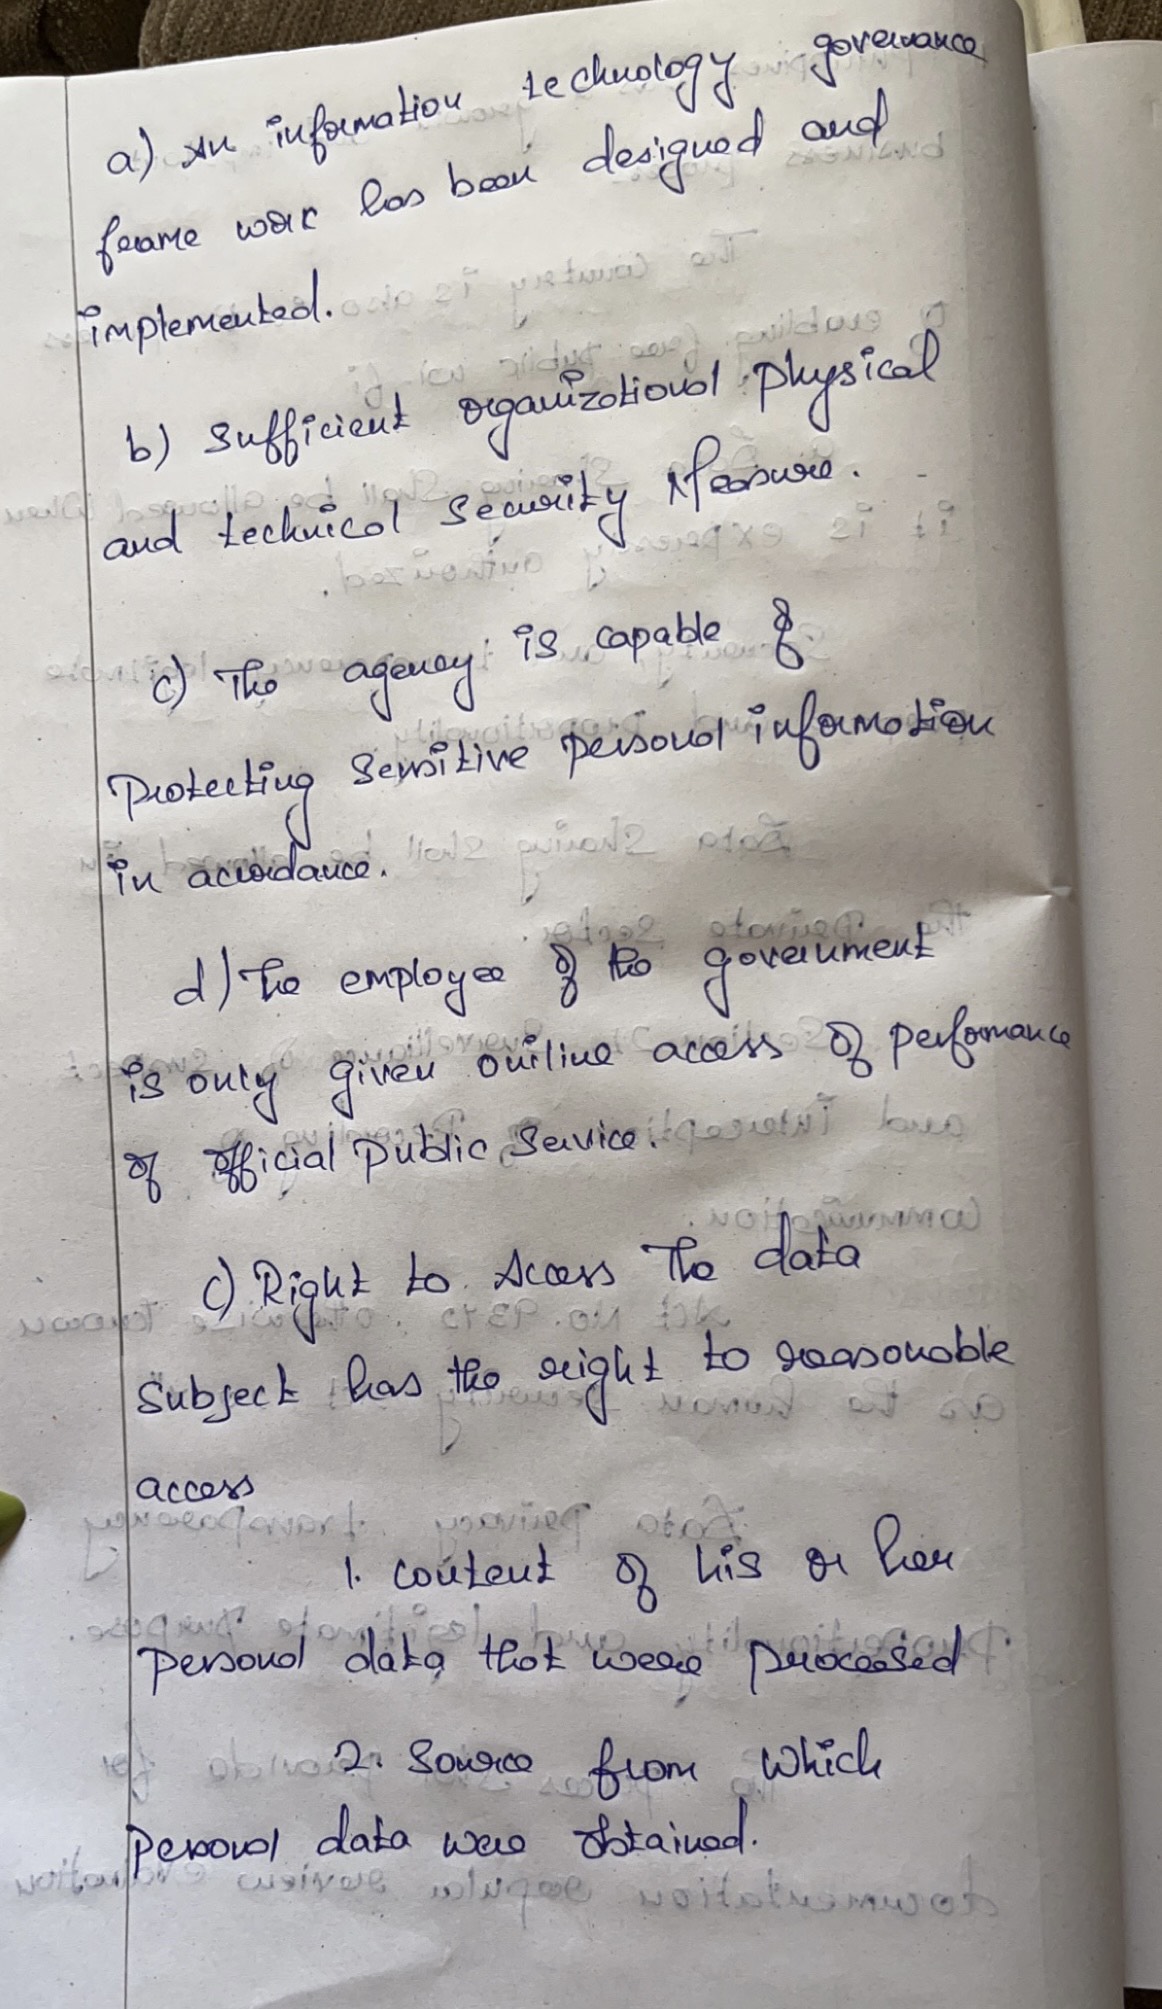 a) An information technology governance
frame work has been designed and
implemented.
b) Sufficient organizational physical
and technical Security Measure.
c) The agency is capable of
Protecting Sensitive personal information
in accordance.
d) The employee of the government
is only given online access of performance
of official public Service.
c) Right to Access The data
Subject has the right to reasonable
access
1. content of his or her
personal data that were processed
2. Source from which
personal data were obtained.